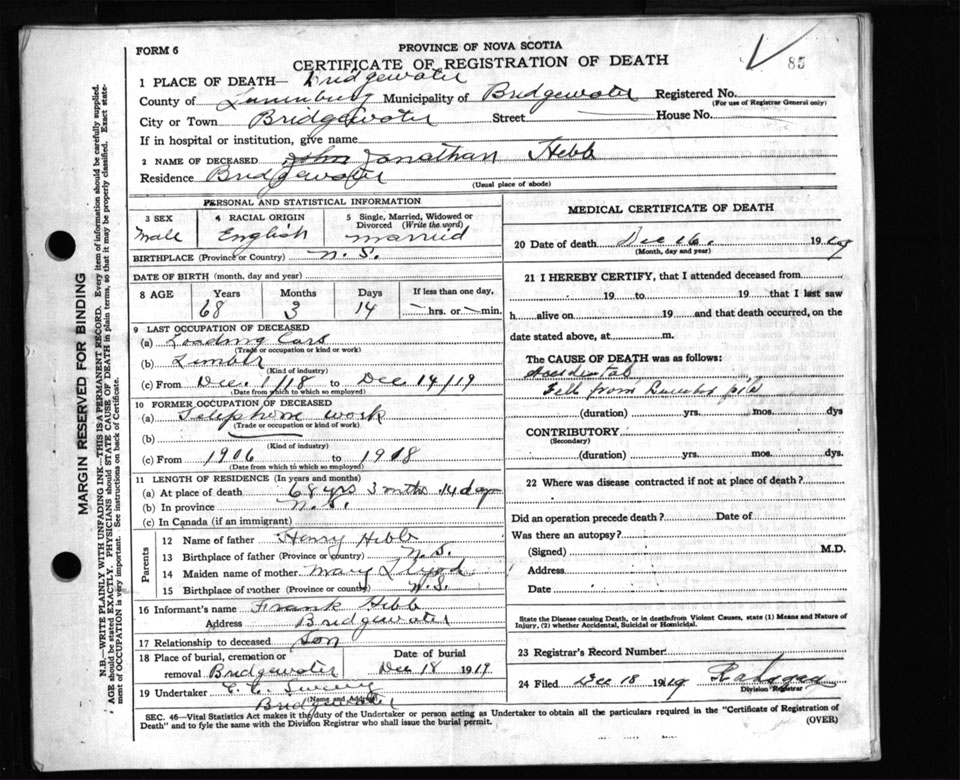 FORM 6
PROVINCE OF NOVA SCOTIA
85
CERTIFICATE OF REGISTRATION OF DEATH
1 PLACE OF DEATH— Bridgewater
County of Lunenburg Municipality of Bridgewater Registered No.
(For use of Registrar General only)
City or Town Bridgewater Street House No.
If in hospital or institution, give name
2 NAME OF DECEASED John Jonathan Hebb
Residence Bridgewater
(Usual place of abode)
MARGIN RESERVED FOR BINDING
N.B.—WRITE PLAINLY WITH UNFADING INK—THIS IS A PERMANENT RECORD. Every item of information should be carefully supplied.
AGE should be stated EXACTLY. PHYSICIANS should STATE CAUSE OF DEATH in plain terms, so that it may be properly classified. Exact state-
ment of OCCUPATION is very important. See instructions on back of Certificate.
PERSONAL AND STATISTICAL INFORMATION
3 SEX
Male
4 RACIAL ORIGIN
English
5 Single, Married, Widowed or
Divorced (Write the word)
married
BIRTHPLACE (Province or Country) N. S.
DATE OF BIRTH (month, day and year)
8 AGE Years Months Days If less than one day,
68 3 14 hrs. or min.
9 LAST OCCUPATION OF DECEASED
(a) Loading Cars
(Trade or occupation or kind of work)
(b) Lumber
(Kind of industry)
(c) From Dec. 1/18 to Dec 14/19
(Date from which to which so employed)
10 FORMER OCCUPATION OF DECEASED
(a) Telephone work
(Trade or occupation or kind of work)
(b)
(Kind of industry)
(c) From 1906 to 1918
(Date from which to which so employed)
11 LENGTH OF RESIDENCE (In years and months)
(a) At place of death 68 yrs 3 mths 14 days
(b) In province N. S.
(c) In Canada (if an immigrant)
Parents
12 Name of father Henry Hebb
13 Birthplace of father (Province or country) N. S.
14 Maiden name of mother Mary
15 Birthplace of mother (Province or country) N. S.
16 Informant's name Frank Hebb
Address Bridgewater
17 Relationship to deceased Son
18 Place of burial, cremation or Date of burial
removal Bridgewater Dec 18 1919
19 Undertaker
(Name and Address)
Bridgewater
MEDICAL CERTIFICATE OF DEATH
20 Date of death Dec 16. 1919
(Month, day and year)
21 I HEREBY CERTIFY, that I attended deceased from
19 to 19 that I last saw
h alive on 19 and that death occurred, on the
date stated above, at m.
The CAUSE OF DEATH was as follows:
Accidental
Fell from
(duration) yrs. mos. dys
CONTRIBUTORY
(Secondary)
(duration) yrs. mos. dys.
22 Where was disease contracted if not at place of death?
Did an operation precede death? Date of
Was there an autopsy?
(Signed) M.D.
Address
Date
State the Disease causing Death, or in deaths from Violent Causes, state (1) Means and Nature of
Injury, (2) whether Accidental, Suicidal or Homicidal.
23 Registrar's Record Number
24 Filed Dec 18 1919
Division Registrar
SEC. 46—Vital Statistics Act makes it the duty of the Undertaker or person acting as Undertaker to obtain all the particulars required in the "Certificate of Registration of
Death" and to fyle the same with the Division Registrar who shall issue the burial permit.
(OVER)